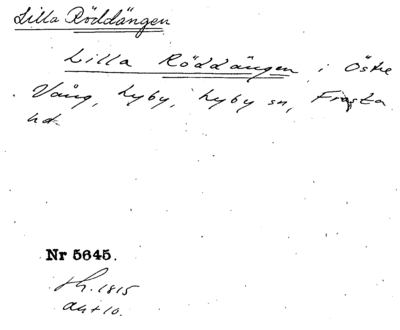 Lilla Röddängen
Lilla Röddängen i Östre
Vång, Lyby, Lyby sn, Frosta
hd.
Nr 5645.
sk. 1815
akt 10.